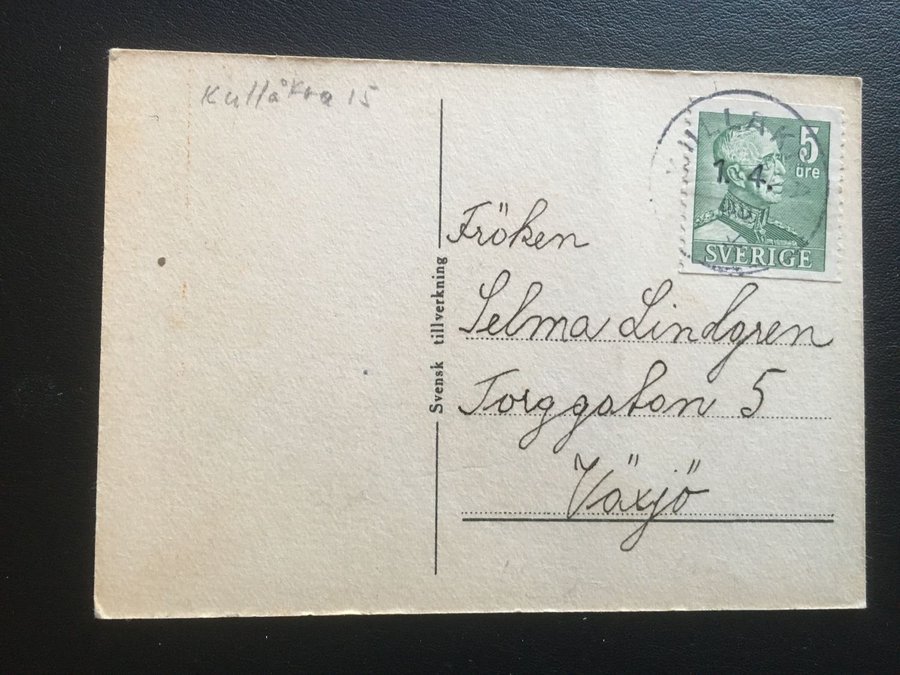 Kullåkra 15
5
öre
1. 4.
SVERIGE
Fröken
Selma Lindgren
Torggatan 5
Växjö
Svensk tillverkning